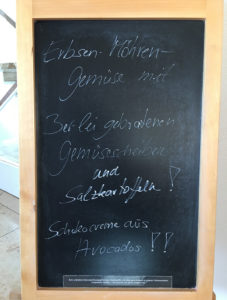 Erbsen-Möhren-
Gemüse mit
gebratenen
Gemüsescheiben
und
Salzkartoffeln!
Schokocreme aus
Avocados!!